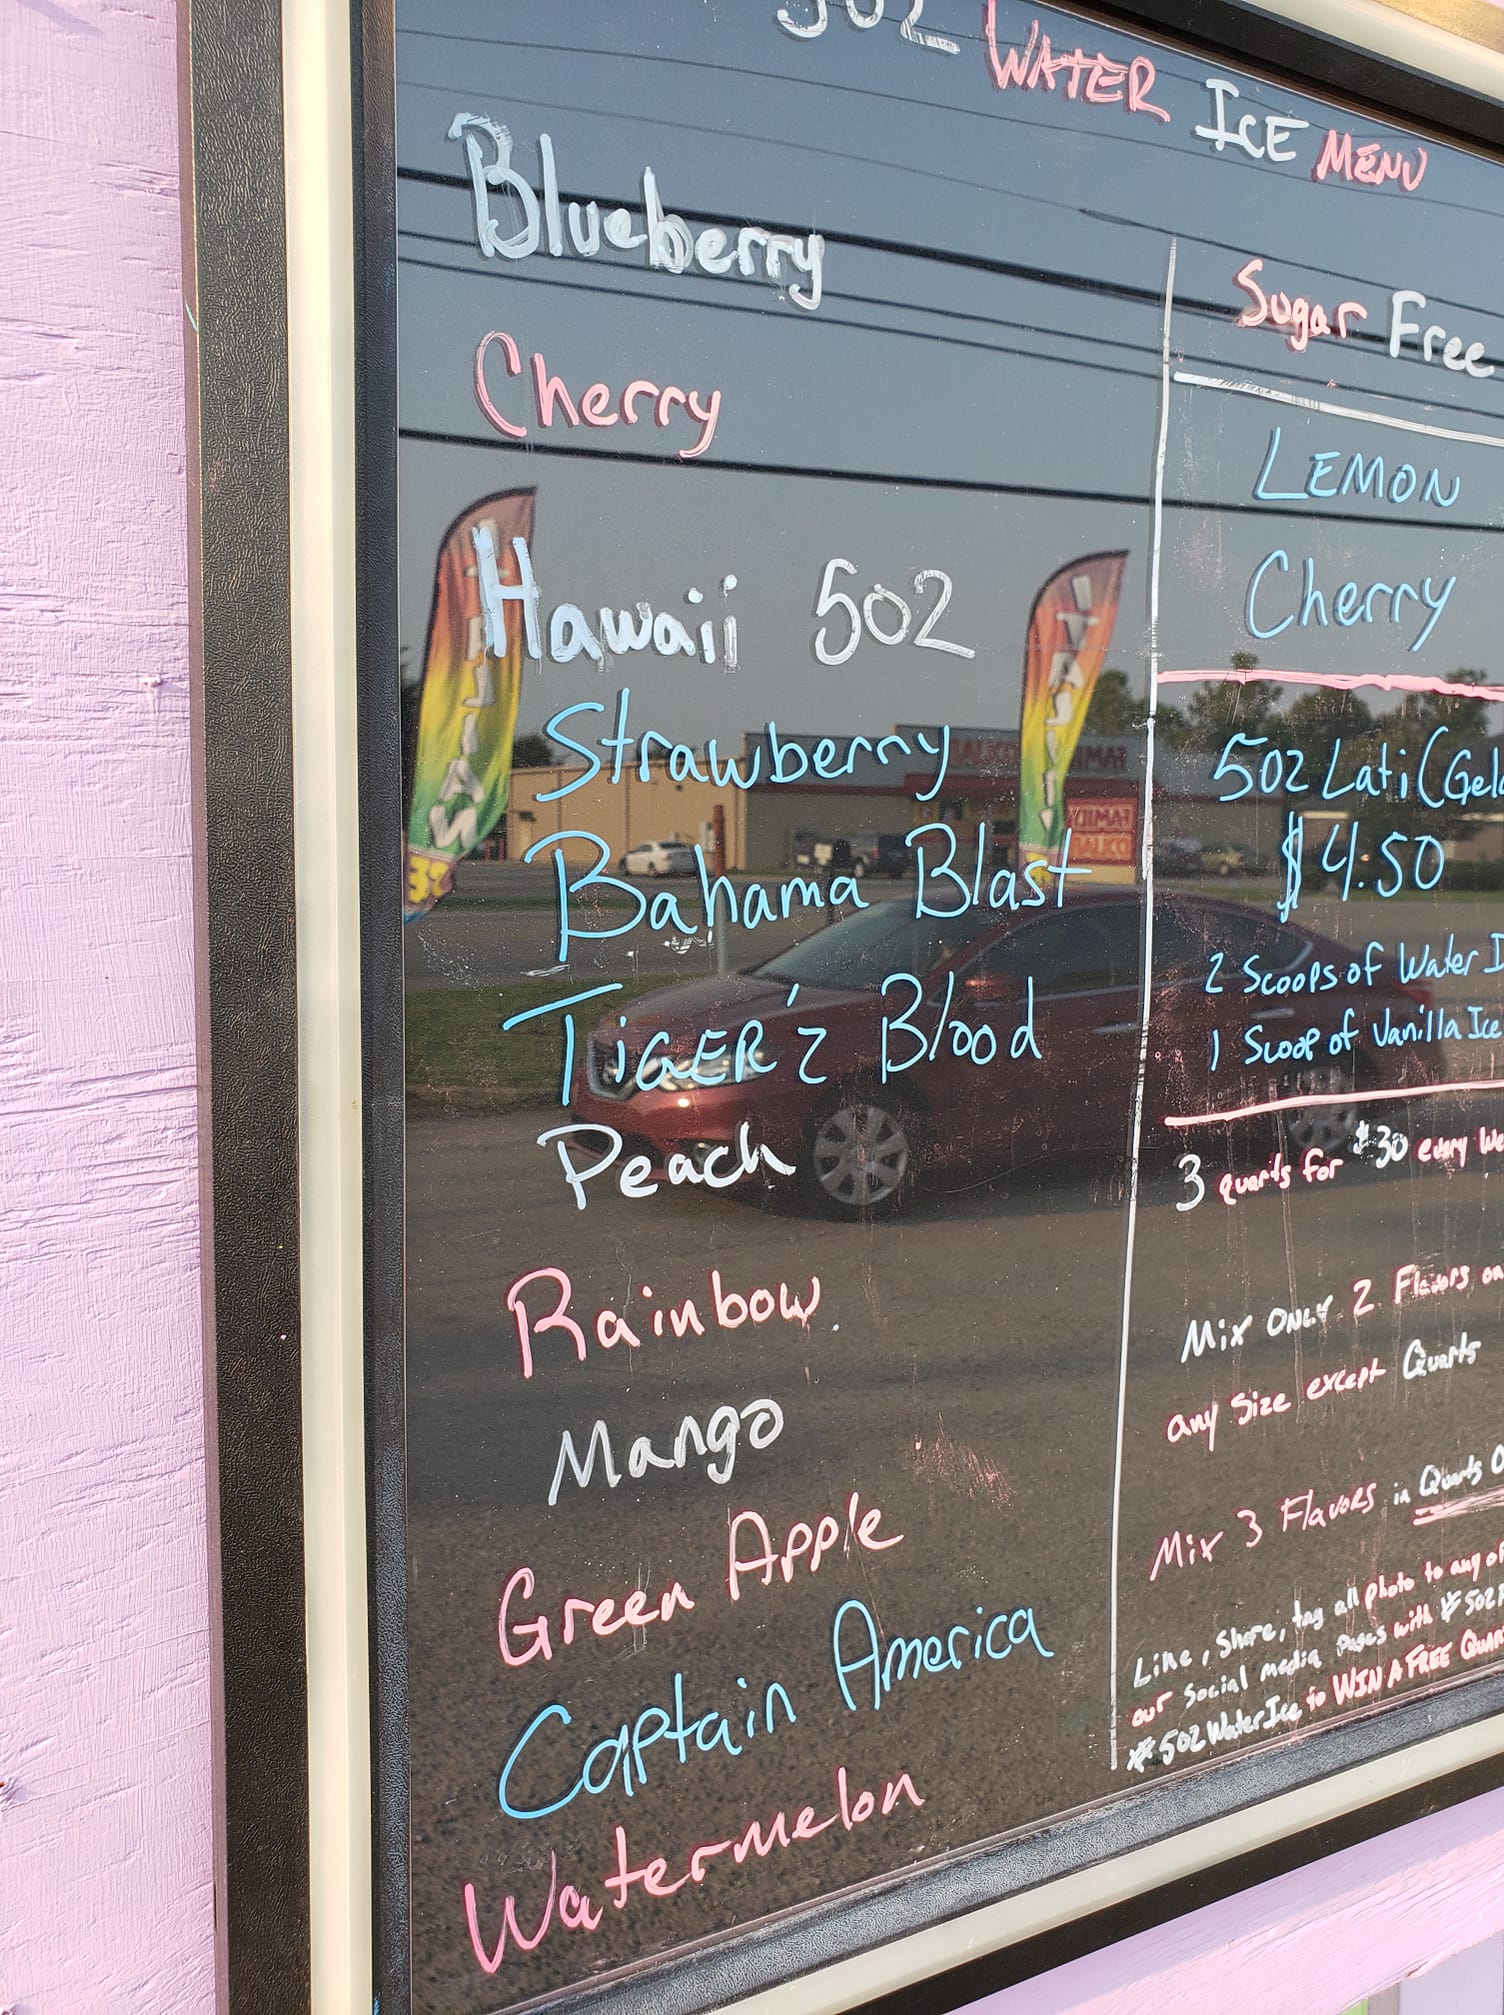 502 WATER ICE MENU
Blueberry
Cherry
Hawaii 502
Strawberry
Bahama Blast
TIGER'z Blood
Peach
Rainbow
Mango
Green Apple
Captain America
Watermelon
Sugar Free
LEMON
Cherry
502 Lati (Gel
$4.50
2 Scoops of Water I
1 Scoop of Vanilla Ice
3 quarts for $30 every We
Mix ONLY 2 Flavors on
any Size except Quarts
Mix 3 Flavors in Quarts O
Like, Share, tag all photo to any of
our Social media Pages with #502
#502WaterIce to WIN A FREE Quar
FAMILY DOLLAR
FAMILY
DOLLAR
ITALIAN
ICE
ITALI